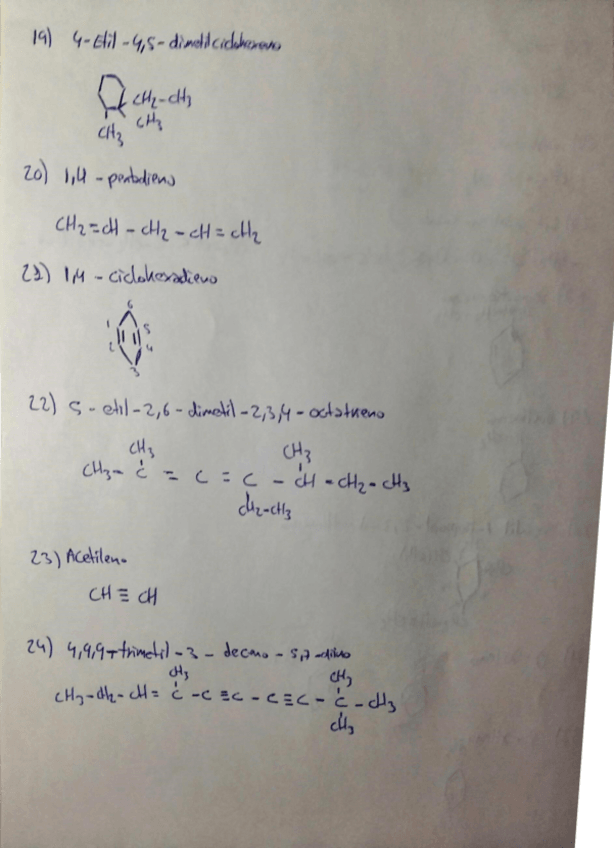 19) 4-Etil-4,5-dimetilciclohexeno
CH2-CH3
CH3
CH3
20) 1,4-pentadieno
CH2=CH-CH2-CH=CH2
21) 1,4-ciclohexadieno
6
1 5
2 4
3
22) 5-etil-2,6-dimetil-2,3,4-octatrieno
CH3 CH3
CH3-C = C = C - CH-CH2-CH3
CH2-CH3
23) Acetileno
CH≡CH
24) 4,9,9-trimetil-3-deceno-5,7-diino
CH3 CH3
CH3-CH2-CH=C-C≡C-C≡C-C-CH3
CH3